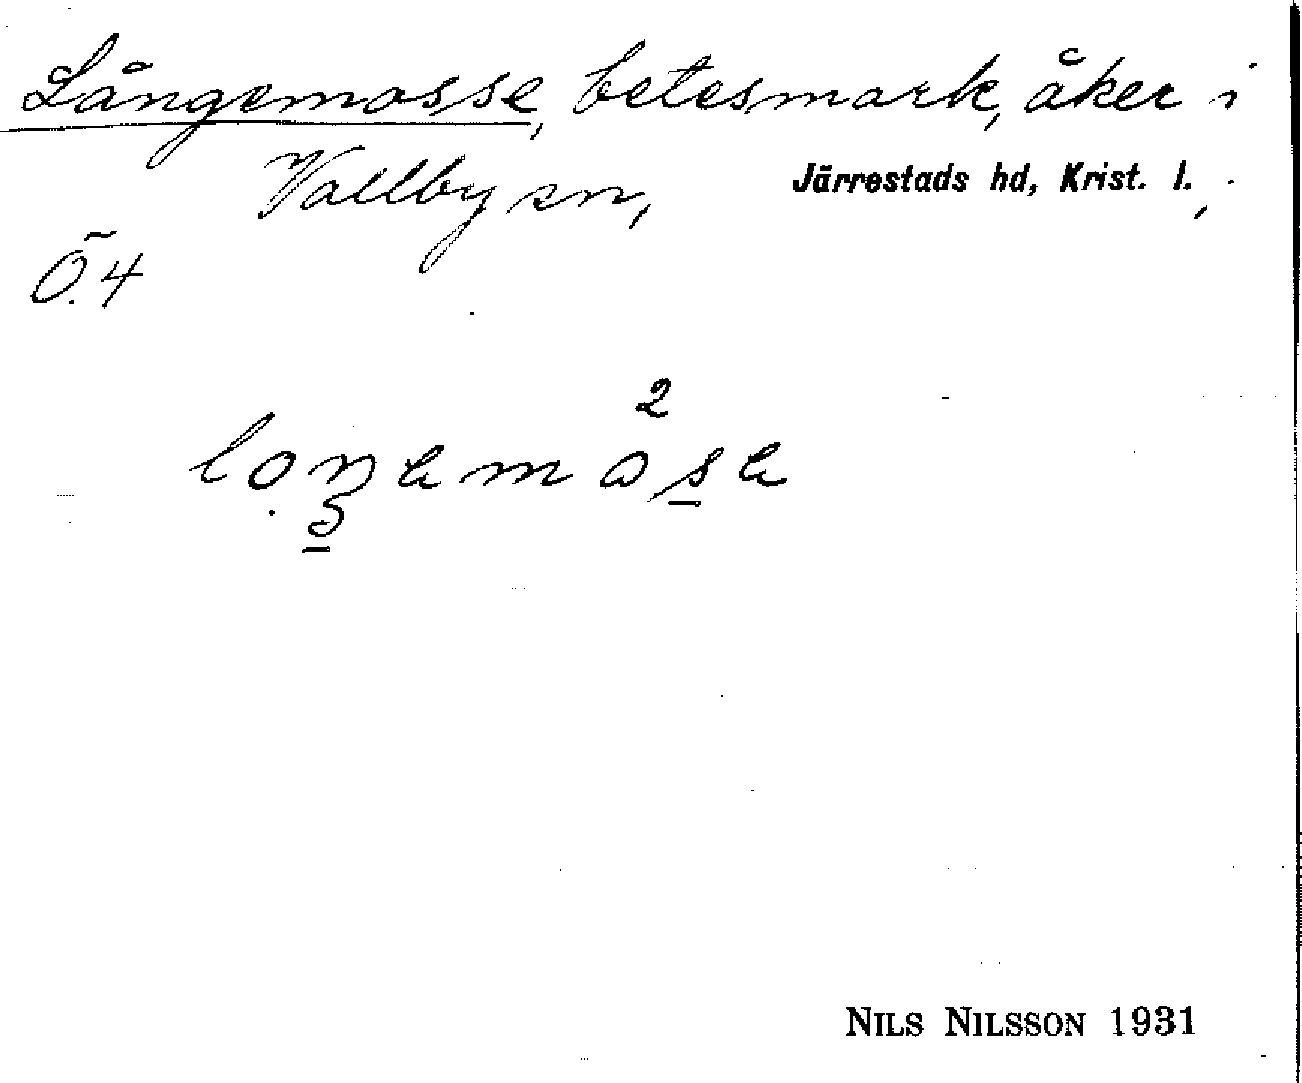 Långemosse, betesmark, åker i
Vallby sn, Järrestads hd, Krist. l.,
Ö.4
2
NILS NILSSON 1931